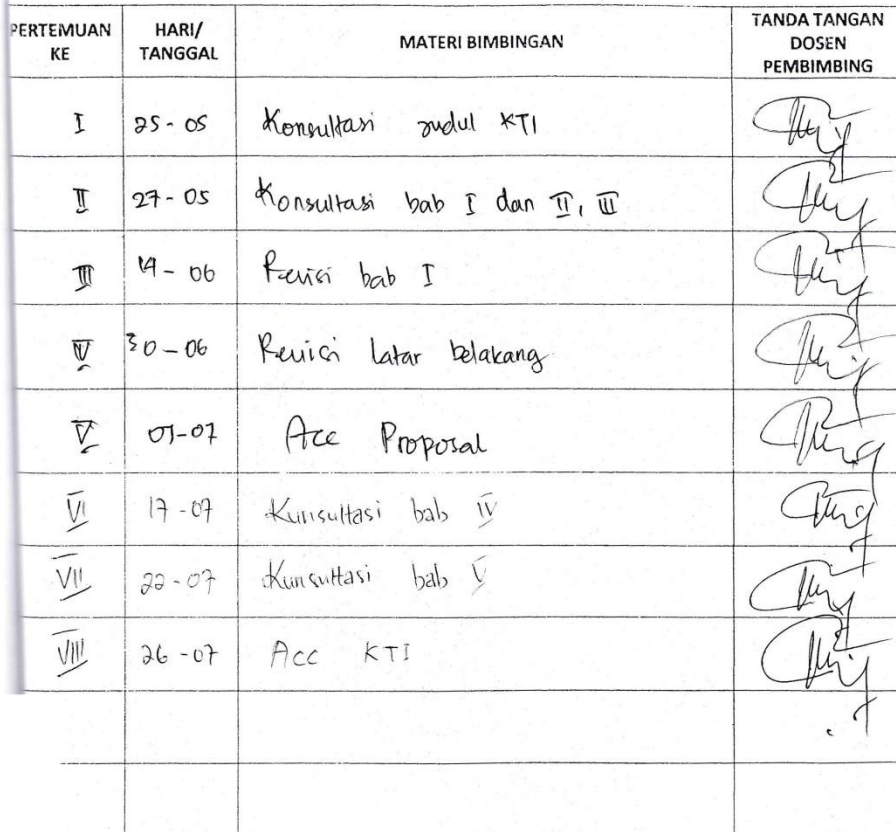 PERTEMUAN KE HARI/ TANGGAL MATERI BIMBINGAN TANDA TANGAN DOSEN PEMBIMBING
I 25-05 Konsultasi Judul KTI
II 27-05 Konsultasi bab I dan II, III
III 14-06 Revisi bab I
IV 30-06 Revisi Latar belakang
V 07-07 Acc Proposal
VI 17-07 Kunsultasi bab IV
VII 22-07 Kunsultasi bab V
VIII 26-07 Acc KTI